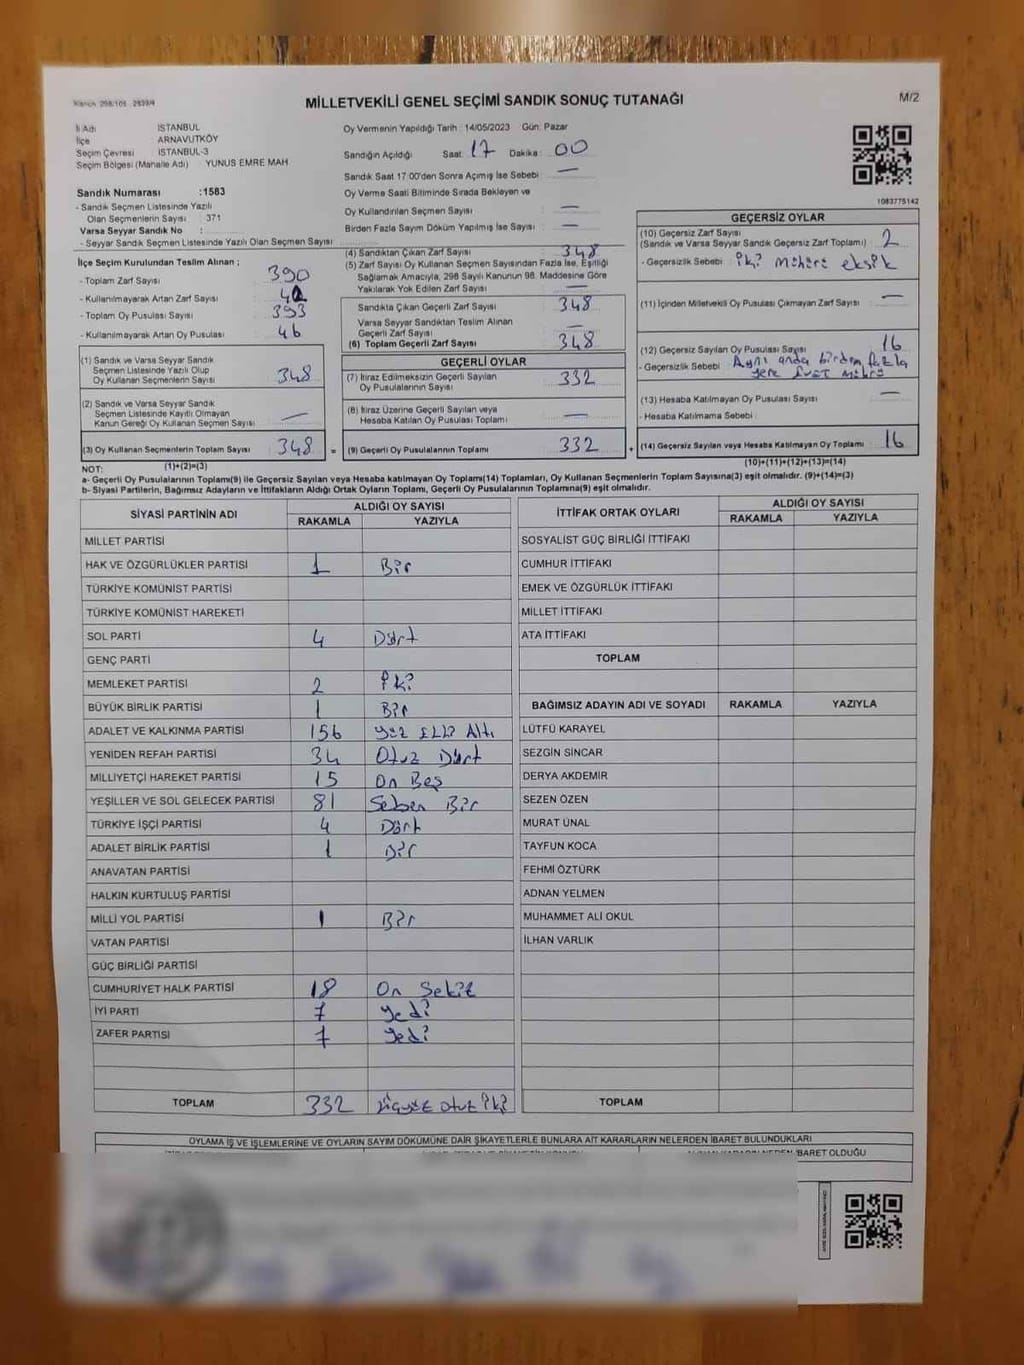 Kanun 298/105 2839/4
MİLLETVEKİLİ GENEL SEÇİMİ SANDIK SONUÇ TUTANAĞI
M/2
İl Adı İSTANBUL
İlçe ARNAVUTKÖY
Seçim Çevresi İSTANBUL-3
Seçim Bölgesi (Mahalle Adı) YUNUS EMRE MAH
Sandık Numarası :1583
- Sandık Seçmen Listesinde Yazılı
Olan Seçmenlerin Sayısı 371
Varsa Seyyar Sandık No :
- Seyyar Sandık Seçmen Listesinde Yazılı Olan Seçmen Sayısı
Oy Vermenin Yapıldığı Tarih : 14/05/2023 Gün: Pazar
Sandığın Açıldığı Saat: 17 Dakika: 00
Sandık Saat 17.00'den Sonra Açılmış İse Sebebi : —
Oy Verme Saati Bitiminde Sırada Bekleyen ve
Oy Kullandırılan Seçmen Sayısı —
Birden Fazla Sayım Döküm Yapılmış İse Sayısı : —
1083775142
İlçe Seçim Kurulundan Teslim Alınan ;
- Toplam Zarf Sayısı 390
- Kullanılmayarak Artan Zarf Sayısı
- Toplam Oy Pusulası Sayısı 393
- Kullanılmayarak Artan Oy Pusulası 46
(1) Sandık ve Varsa Seyyar Sandık
Seçmen Listesinde Yazılı Olup
Oy Kullanan Seçmenlerin Sayısı 348
(2) Sandık ve Varsa Seyyar Sandık
Seçmen Listesinde Kayıtlı Olmayan
Kanun Gereği Oy Kullanan Seçmen Sayısı —
(3) Oy Kullanan Seçmenlerin Toplam Sayısı 348
(1)+(2)=(3)
(4) Sandıktan Çıkan Zarf Sayısı 348
(5) Zarf Sayısı Oy Kullanan Seçmen Sayısından Fazla İse, Eşitliği
Sağlamak Amacıyla, 298 Sayılı Kanunun 98. Maddesine Göre
Yakılarak Yok Edilen Zarf Sayısı —
Sandıkta Çıkan Geçerli Zarf Sayısı 348
Varsa Seyyar Sandıktan Teslim Alınan
Geçerli Zarf Sayısı —
(6) Toplam Geçerli Zarf Sayısı 348
GEÇERLİ OYLAR
(7) İtiraz Edilmeksizin Geçerli Sayılan
Oy Pusulalarının Sayısı 332
(8) İtiraz Üzerine Geçerli Sayılan veya
Hesaba Katılan Oy Pusulası Toplamı —
= (9) Geçerli Oy Pusulalarının Toplamı 332
GEÇERSİZ OYLAR
(10) Geçersiz Zarf Sayısı
(Sandık ve Varsa Seyyar Sandık Geçersiz Zarf Toplamı) 2
- Geçersizlik Sebebi : iki mühürü eksik
(11) İçinden Milletvekili Oy Pusulası Çıkmayan Zarf Sayısı —
(12) Geçersiz Sayılan Oy Pusulası Sayısı 16
- Geçersizlik Sebebi Aynı anda birden fazla
yere Evet mührü
(13) Hesaba Katılmayan Oy Pusulası Sayısı —
- Hesaba Katılmama Sebebi :
+ (14) Geçersiz Sayılan veya Hesaba Katılmayan Oy Toplamı 16
(10)+(11)+(12)+(13)=(14)
NOT:
a- Geçerli Oy Pusulalarının Toplamı(9) ile Geçersiz Sayılan veya Hesaba katılmayan Oy Toplam(14) Toplamları, Oy Kullanan Seçmenlerin Toplam Sayısına(3) eşit olmalıdır. (9)+(14)=(3)
b- Siyasi Partilerin, Bağımsız Adayların ve İttifakların Aldığı Ortak Oyların Toplamı, Geçerli Oy Pusulalarının Toplamına(9) eşit olmalıdır.
SİYASİ PARTİNİN ADI ALDIĞI OY SAYISI
RAKAMLA YAZIYLA
MİLLET PARTİSİ
HAK VE ÖZGÜRLÜKLER PARTİSİ 1 Bir
TÜRKİYE KOMÜNİST PARTİSİ
TÜRKİYE KOMÜNİST HAREKETİ
SOL PARTİ 4 Dört
GENÇ PARTİ
MEMLEKET PARTİSİ 2 iki
BÜYÜK BİRLİK PARTİSİ 1 Bir
ADALET VE KALKINMA PARTİSİ 156 Yüz Elli Altı
YENİDEN REFAH PARTİSİ 34 Otuz Dört
MİLLİYETÇİ HAREKET PARTİSİ 15 On Beş
YEŞİLLER VE SOL GELECEK PARTİSİ 81 Seksen Bir
TÜRKİYE İŞÇİ PARTİSİ 4 Dört
ADALET BİRLİK PARTİSİ 1 Bir
ANAVATAN PARTİSİ
HALKIN KURTULUŞ PARTİSİ
MİLLİ YOL PARTİSİ 1 Bir
VATAN PARTİSİ
GÜÇ BİRLİĞİ PARTİSİ
CUMHURİYET HALK PARTİSİ 18 On Sekiz
İYİ PARTİ 7 Yedi
ZAFER PARTİSİ 7 Yedi
TOPLAM 332 üçyüz otuz iki
İTTİFAK ORTAK OYLARI ALDIĞI OY SAYISI
RAKAMLA YAZIYLA
SOSYALİST GÜÇ BİRLİĞİ İTTİFAKI
CUMHUR İTTİFAKI
EMEK VE ÖZGÜRLÜK İTTİFAKI
MİLLET İTTİFAKI
ATA İTTİFAKI
TOPLAM
BAĞIMSIZ ADAYIN ADI VE SOYADI RAKAMLA YAZIYLA
LÜTFÜ KARAYEL
SEZGİN SİNCAR
DERYA AKDEMİR
SEZEN ÖZEN
MURAT ÜNAL
TAYFUN KOCA
FEHMİ ÖZTÜRK
ADNAN YELMEN
MUHAMMET ALİ OKUL
İLHAN VARLIK
TOPLAM
OYLAMA İŞ VE İŞLEMLERİNE VE OYLARIN SAYIM DÖKÜMÜNE DAİR ŞİKAYETLERLE BUNLARA AİT KARARLARIN NELERDEN İBARET BULUNDUKLARI
İBARET OLDUĞU